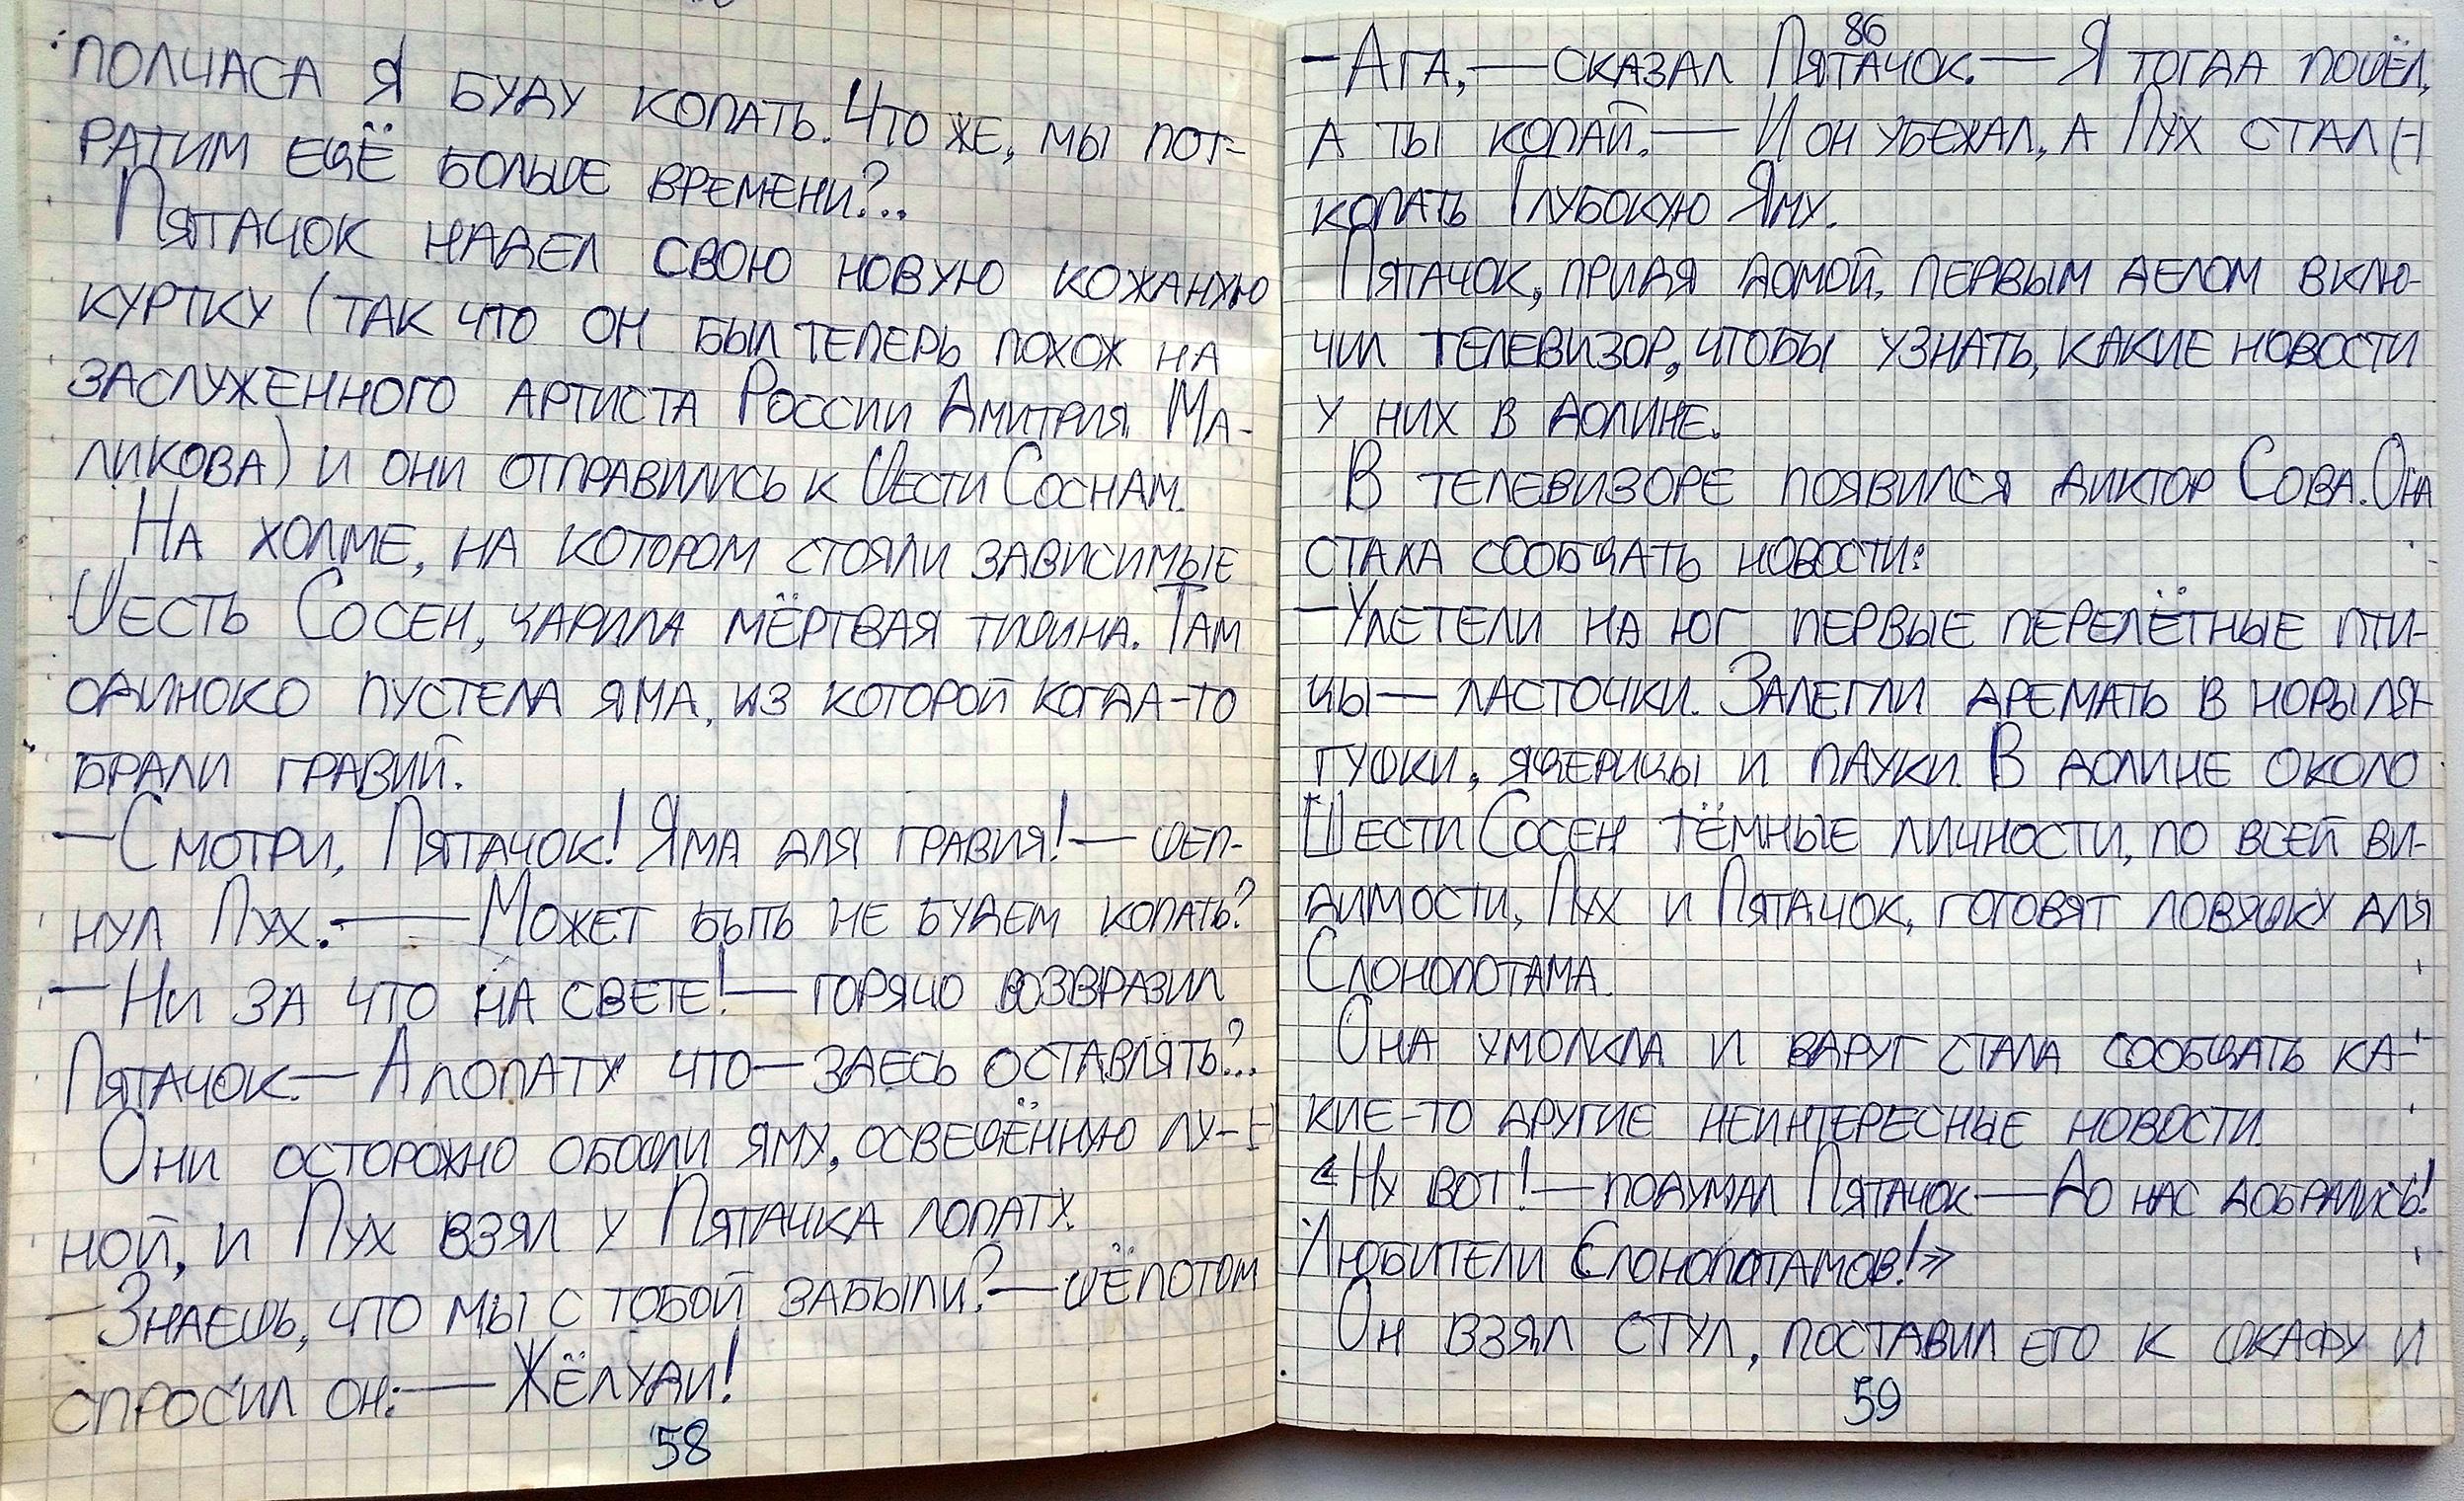 ПОЛЧАСА Я БУДУ КОПАТЬ. ЧТО ЖЕ, МЫ ПОТ-
РАТИМ ЕЩЁ БОЛЬШЕ ВРЕМЕНИ?..
ПЯТАЧОК НАДЕЛ СВОЮ НОВУЮ КОЖАНУЮ
КУРТКУ (ТАК ЧТО ОН БЫЛ ТЕПЕРЬ ПОХОЖ НА
ЗАСЛУЖЕННОГО АРТИСТА РОССИИ ДМИТРИЯ МА-
ЛИКОВА) И ОНИ ОТПРАВИЛИСЬ К ШЕСТИ СОСНАМ.
НА ХОЛМЕ, НА КОТОРОМ СТОЯЛИ ЗАВИСИМЫЕ
ШЕСТЬ СОСЕН, ЦАРИЛА МЁРТВАЯ ТИШИНА. ТАМ
ОДИНОКО ПУСТЕЛА ЯМА, ИЗ КОТОРОЙ КОГДА-ТО
БРАЛИ ГРАВИЙ.
— СМОТРИ, ПЯТАЧОК! ЯМА ДЛЯ ГРАВИЯ! — ШЕП-
НУЛ ПУХ. — МОЖЕТ БЫТЬ НЕ БУДЕМ КОПАТЬ?
— НИ ЗА ЧТО НА СВЕТЕ! — ГОРЯЧО ВОЗВРАЗИЛ
ПЯТАЧОК. — А ЛОПАТУ ЧТО — ЗДЕСЬ ОСТАВЛЯТЬ?..
ОНИ ОСТОРОЖНО ОБОШЛИ ЯМУ, ОСВЕЩЁННУЮ ЛУ-
НОЙ, И ПУХ ВЗЯЛ У ПЯТАЧКА ЛОПАТУ.
— ЗНАЕШЬ, ЧТО МЫ С ТОБОЙ ЗАБЫЛИ? — ШЁПОТОМ
СПРОСИЛ ОН: — ЖЁЛУДИ!
58
86
— АГА, — СКАЗАЛ ПЯТАЧОК. — Я ТОГДА ПОШЁЛ,
А ТЫ КОПАЙ. — И ОН УБЕЖАЛ, А ПУХ СТАЛ
КОПАТЬ ГЛУБОКУЮ ЯМУ.
ПЯТАЧОК, ПРИДЯ ДОМОЙ, ПЕРВЫМ ДЕЛОМ ВКЛЮ-
ЧИЛ ТЕЛЕВИЗОР, ЧТОБЫ УЗНАТЬ, КАКИЕ НОВОСТИ
У НИХ В ДОЛИНЕ.
В ТЕЛЕВИЗОРЕ ПОЯВИЛСЯ ДИКТОР СОВА. ОНА
СТАЛА СООБЩАТЬ НОВОСТИ:
— УЛЕТЕЛИ НА ЮГ ПЕРВЫЕ ПЕРЕЛЁТНЫЕ ПТИ-
ЦЫ — ЛАСТОЧКИ. ЗАЛЕГЛИ ДРЕМАТЬ В НОРЫ ЛЯ-
ГУШКИ, ЯЩЕРИЦЫ И ПАУКИ. В ДОЛИНЕ ОКОЛО
ШЕСТИ СОСЕН ТЁМНЫЕ ЛИЧНОСТИ, ПО ВСЕЙ ВИ-
ДИМОСТИ, ПУХ И ПЯТАЧОК, ГОТОВЯТ ЛОВУШКУ ДЛЯ
СЛОНОПОТАМА.
ОНА УМОЛКЛА И ВДРУГ СТАЛА СООБЩАТЬ КА-
КИЕ-ТО ДРУГИЕ НЕИНТЕРЕСНЫЕ НОВОСТИ.
«НУ ВОТ! — ПОДУМАЛ ПЯТАЧОК — ДО НАС ДОБРАЛИСЬ!
ЛЮБИТЕЛИ СЛОНОПОТАМОВ!»
ОН ВЗЯЛ СТУЛ, ПОСТАВИЛ ЕГО К ШКАФУ И
59